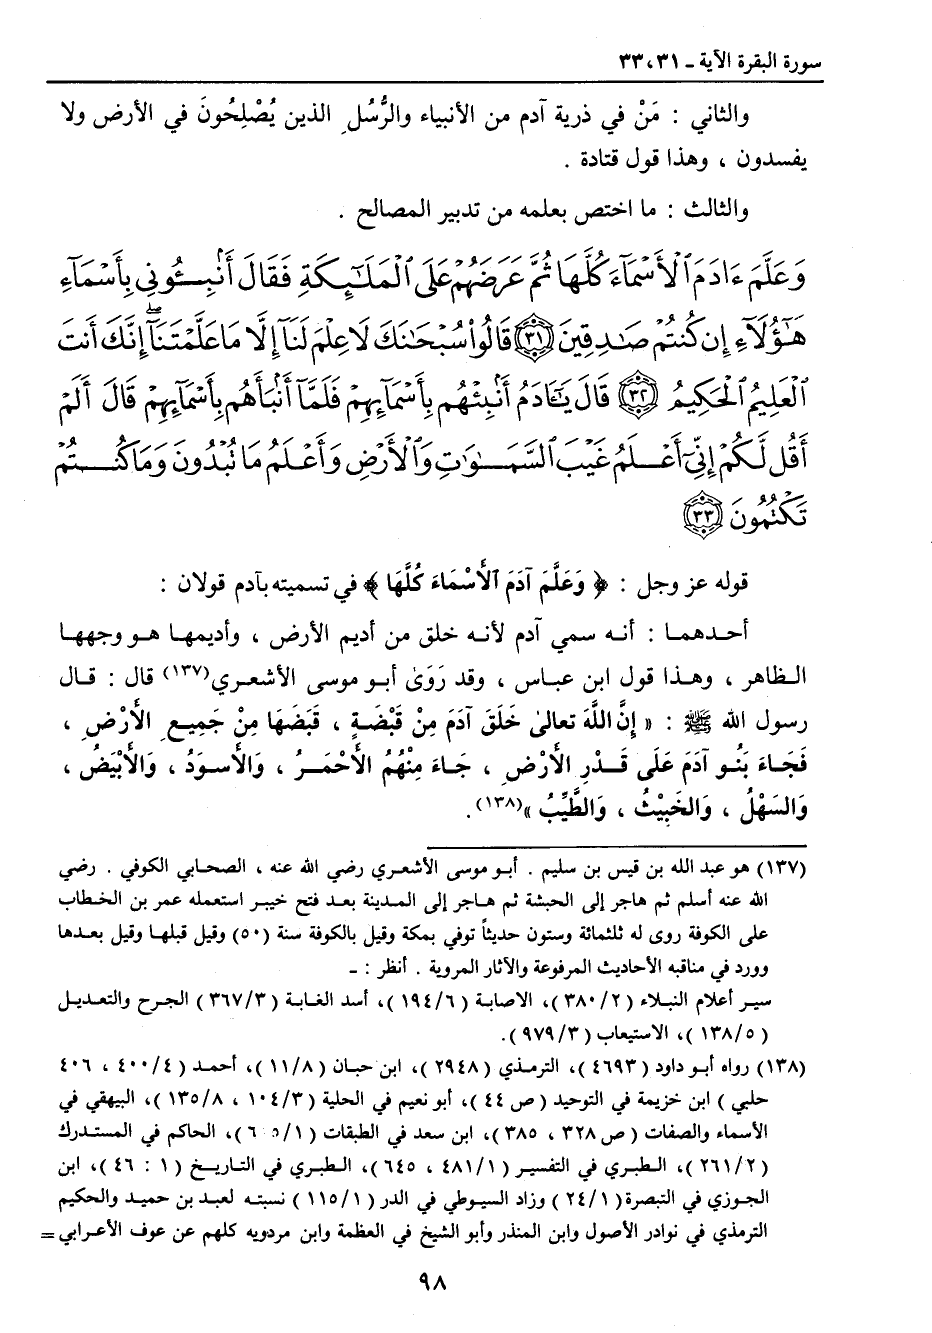 سورة البقرة الآية ـ ٣١، ٣٣
والثاني : مَنْ في ذرية آدم من الأنبياء والرُّسُلِ الذين يُصْلِحُونَ في الأرض ولا
يفسدون ، وهذا قول قتادة .
والثالث : ما اختص بعلمه من تدبير المصالح .
وَعَلَّمَ ءَادَمَ ٱلْأَسْمَآءَ كُلَّهَا ثُمَّ عَرَضَهُمْ عَلَى ٱلْمَلَٰٓئِكَةِ فَقَالَ أَنۢبِـُٔونِى بِأَسْمَآءِ
هَٰٓؤُلَآءِ إِن كُنتُمْ صَٰدِقِينَ ٣١ قَالُوا۟ سُبْحَٰنَكَ لَا عِلْمَ لَنَآ إِلَّا مَا عَلَّمْتَنَآ ۖ إِنَّكَ أَنتَ
ٱلْعَلِيمُ ٱلْحَكِيمُ ٣٢ قَالَ يَٰٓـَٔادَمُ أَنۢبِئْهُم بِأَسْمَآئِهِمْ فَلَمَّآ أَنۢبَأَهُم بِأَسْمَآئِهِمْ قَالَ أَلَمْ
أَقُل لَّكُمْ إِنِّىٓ أَعْلَمُ غَيْبَ ٱلسَّمَٰوَٰتِ وَٱلْأَرْضِ وَأَعْلَمُ مَا تُبْدُونَ وَمَا كُنتُمْ
تَكْتُمُونَ ٣٣
قوله عز وجل : ﴿ وَعَلَّمَ آدَمَ الْأَسْمَاءَ كُلَّهَا ﴾ في تسميته بآدم قولان :
أحدهما : أنه سمي آدم لأنه خلق من أديم الأرض ، وأديمها هو وجهها
الظاهر ، وهذا قول ابن عباس ، وقد رَوَىٰ أبو موسى الأشعري(١٣٧) قال : قال
رسول الله ﷺ : « إِنَّ اللَّهَ تعالىٰ خَلَقَ آدَمَ مِنْ قَبْضَةٍ ، قَبَضَهَا مِنْ جَمِيعِ الأَرْضِ ،
فَجَاءَ بَنُو آدَمَ عَلَى قَدْرِ الأَرْضِ ، جَاءَ مِنْهُمُ الأَحْمَرُ ، وَالأَسوَدُ ، وَالأَبْيَضُ ،
وَالسَهْلُ ، وَالخَبِيْثُ ، وَالطَّيِّبُ »(١٣٨).
(١٣٧) هو عبد الله بن قيس بن سليم . أبو موسى الأشعري رضي الله عنه ، الصحابي الكوفي . رضي
الله عنه أسلم ثم هاجر إلى الحبشة ثم هاجر إلى المدينة بعد فتح خيبر استعمله عمر بن الخطاب
على الكوفة روى له ثلثمائة وستون حديثاً توفي بمكة وقيل بالكوفة سنة (٥٠) وقيل قبلها وقيل بعدها
وورد في مناقبه الأحاديث المرفوعة والآثار المروية . أنظر : ـ
سير أعلام النبلاء ( ٢/ ٣٨٠ )، الاصابة ( ٦/ ١٩٤ )، أسد الغابة ( ٣/ ٣٦٧ ) الجرح والتعديل
( ٥/ ١٣٨ )، الاستيعاب ( ٣/ ٩٧٩ ).
(١٣٨) رواه أبو داود ( ٤٦٩٣ )، الترمذي ( ٢٩٤٨ )، ابن حبان ( ٨/ ١١ )، أحمد ( ٤/ ٤٠٠ ، ٤٠٦
حلبي ) ابن خزيمة في التوحيد ( ص ٤٤ )، أبو نعيم في الحلية ( ٣/ ١٠٤ ، ٨/ ١٣٥ )، البيهقي في
الأسماء والصفات ( ص ٣٢٨ ، ٣٨٥ )، ابن سعد في الطبقات ( )، الحاكم في المستدرك
( ٢/ ٢٦١ )، الطبري في التفسير ( ١/ ٤٨١ ، ٦٤٥ )، الطبري في التاريخ ( ١ : ٤٦ )، ابن
الجوزي في التبصرة ( ١/ ٢٤ ) وزاد السيوطي في الدر ( ١/ ١١٥ ) نسبته لعبد بن حميد والحكيم
الترمذي في نوادر الأصول وابن المنذر وأبو الشيخ في العظمة وابن مردويه كلهم عن عوف الأعرابي =
٩٨